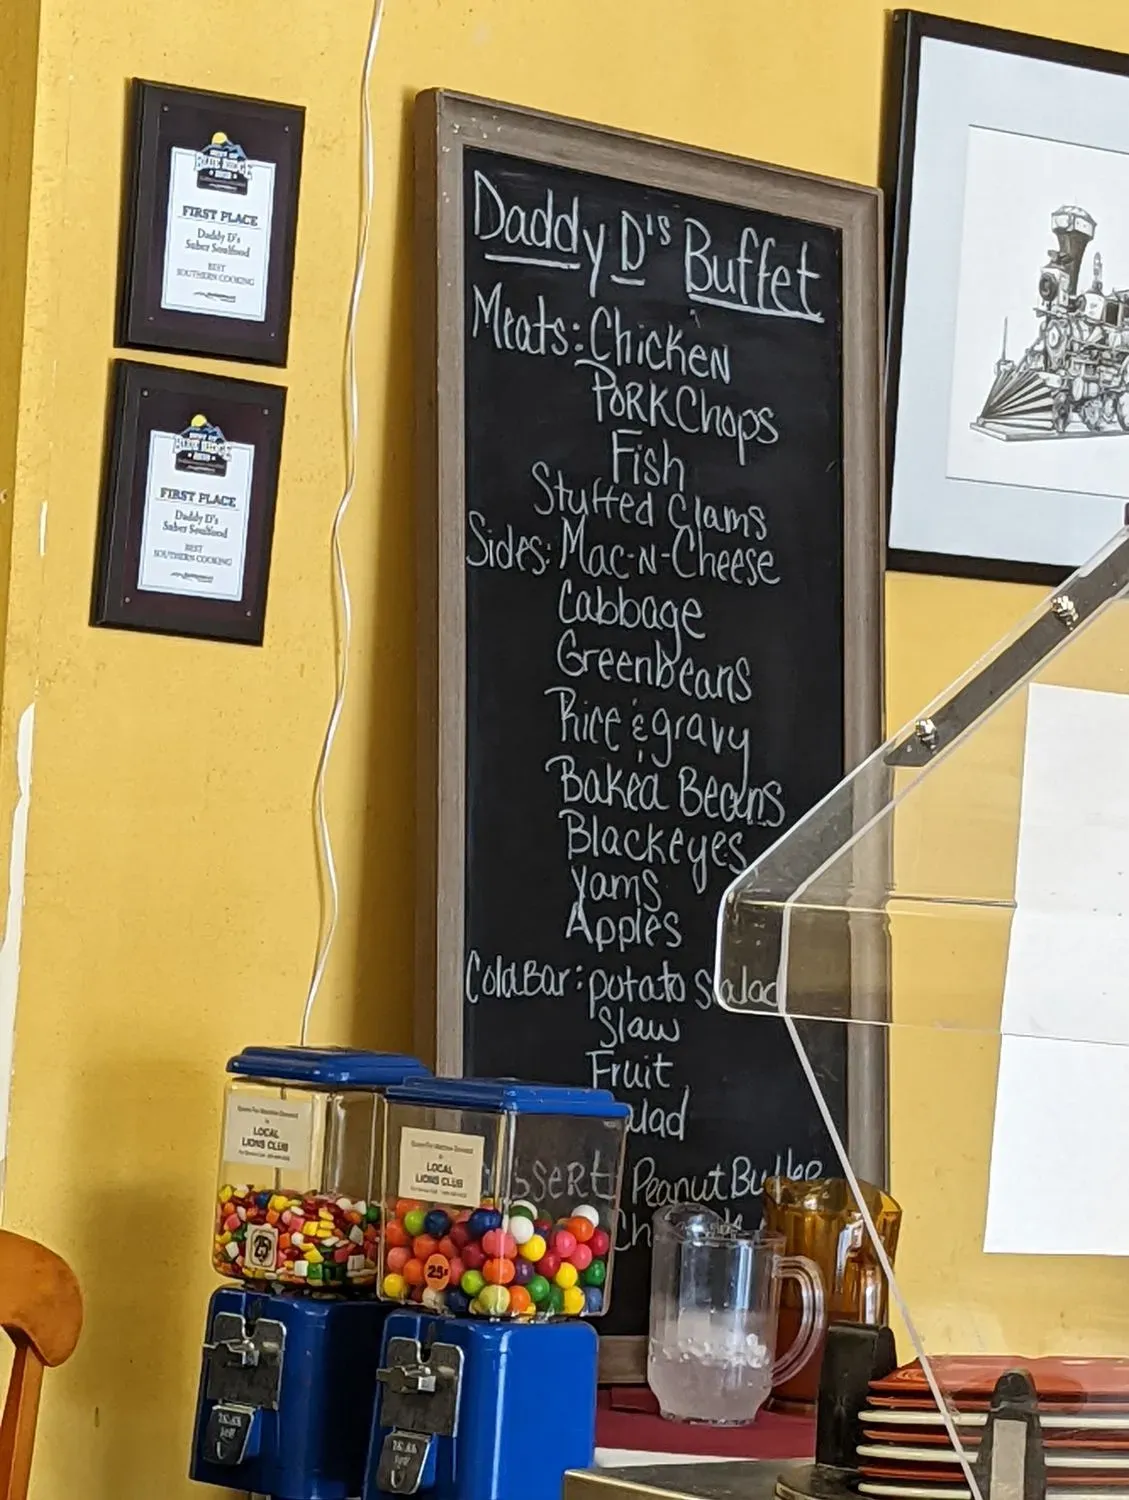 BEST OF
BLUE RIDGE
FIRST PLACE
Daddy D's
Suber Soulfood
BEST
SOUTHERN COOKING
BEST OF
BLUE RIDGE
FIRST PLACE
Daddy D's
Suber Soulfood
BEST
SOUTHERN COOKING
Daddy D's Buffet
Meats: Chicken
Pork Chops
Fish
Stuffed Clams
Sides: Mac-N-Cheese
Cabbage
Greenbeans
Rice & gravy
Baked Beans
Blackeyes
Yams
Apples
ColdBar: potato Salad
Slaw
Fruit
alad
ssert Peanut Butte
Ch
LOCAL
LIONS CLUB
LOCAL
LIONS CLUB
25¢
25¢